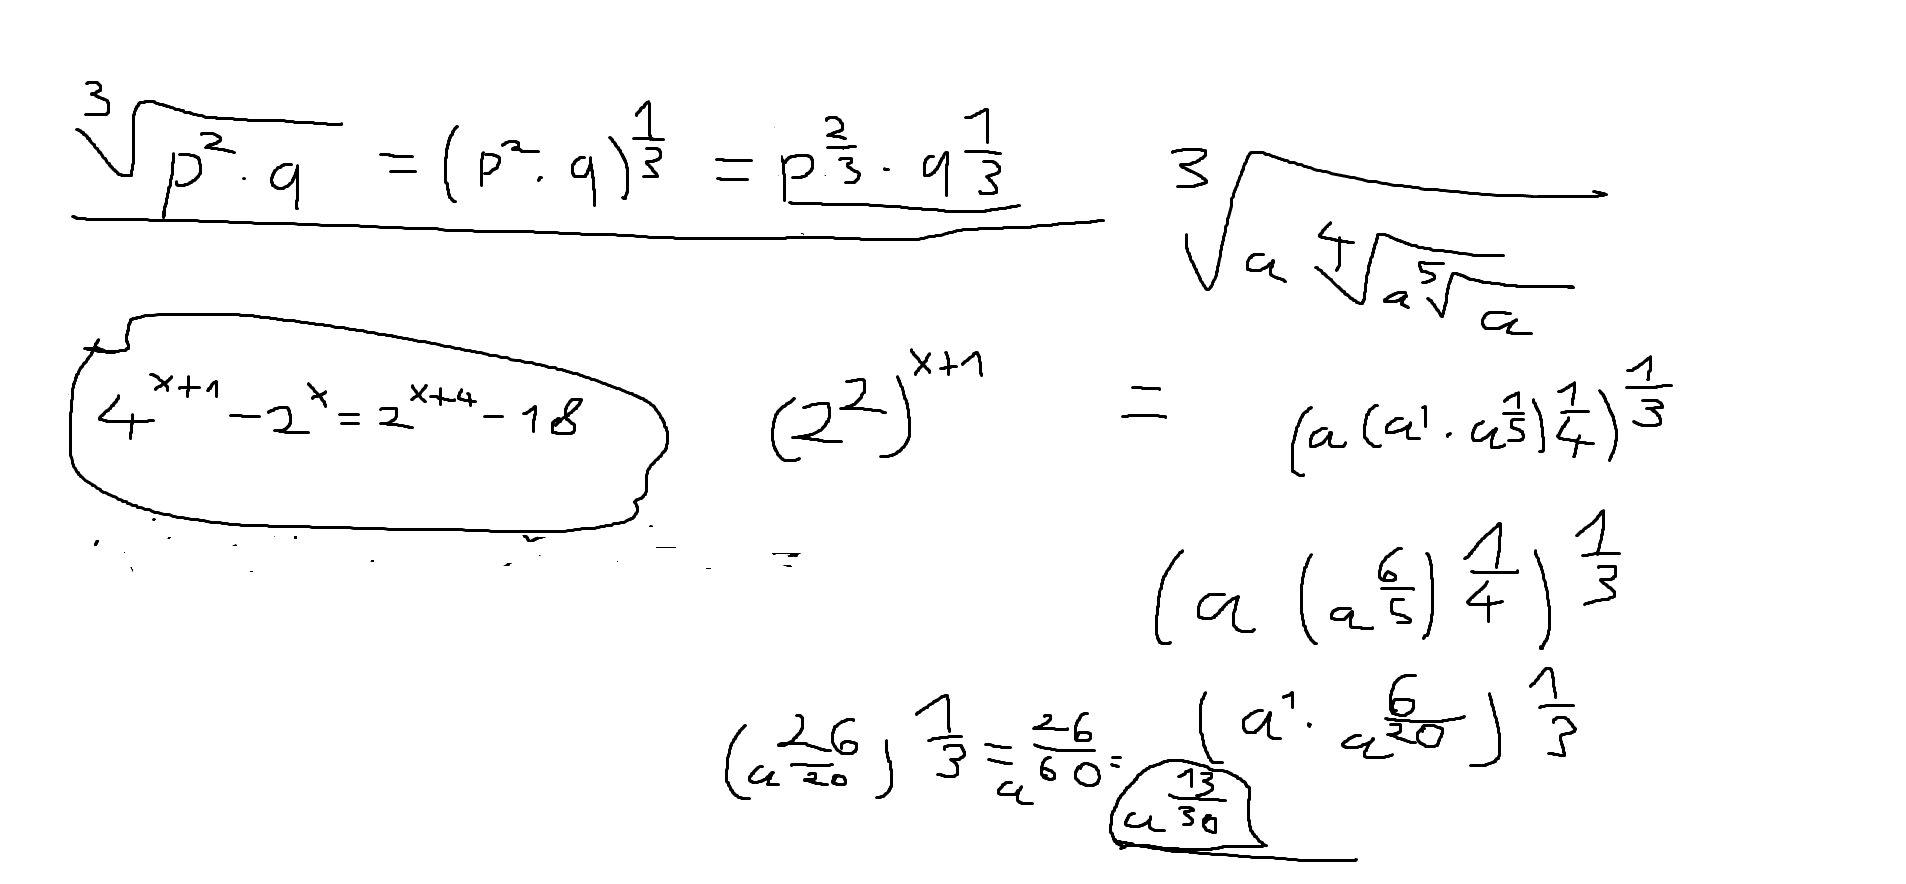 ∛(p²·q) = (p²·q)^(1/3) = p^(2/3)·q^(1/3)
∛(a ∜(a ⁵√a))
4^(x+1) - 2^x = 2^(x+4) - 18
(2²)^(x+1)
= (a(a¹·a^(1/5))^(1/4))^(1/3)
(a(a^(6/5))^(1/4))^(1/3)
(a¹·a^(6/20))^(1/3)
(a^(26/20))^(1/3) = a^(26/60) = a^(13/30)